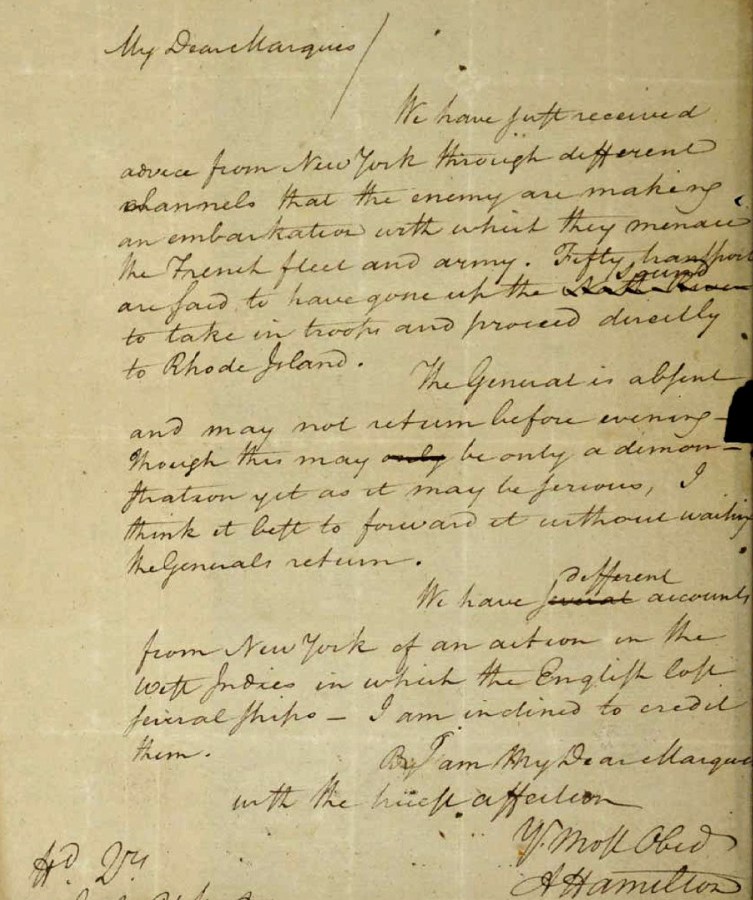 My Dear Marquis
We have just received
advice from New York through different
channels that the enemy are making
an embarkation with which they menace
the French fleet and army. Fifty transports
Sound
are said to have gone up the North River
to take in troops and proceed directly
to Rhode Island.
The General is absent
and may not return before evening –
though this may only be only a demon–
stration yet as it may be serious, I
think it best to forward it without waiting
the Generals return.
different
We have several accounts
from New York of an action in the
West Indies in which the English lost
several ships – I am inclined to credit
them.
I am My Dear Marquis
with the truest affection
Yr. Most Obed
A Hamilton
Hd Qrs